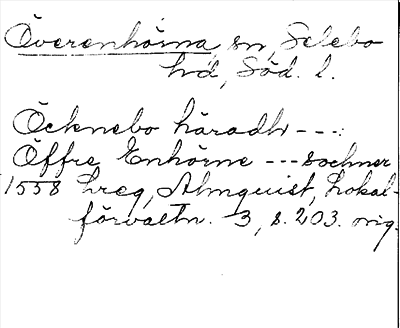 Överenhörna, sn, Selebo
hd, Söd. l.
Öcknebo häradh ---:
Öffre Enhörne --- sochner
1558 Lreg, Almquist, Lokal-
förvaltn. 3, s. 203. orig.